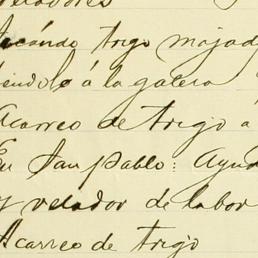 veladores
sacándo trigo majad
iendolo á la galera
Acarreo de trigo á
En San Pablo: Ayud
y velador de labor
Acarreo de trigo